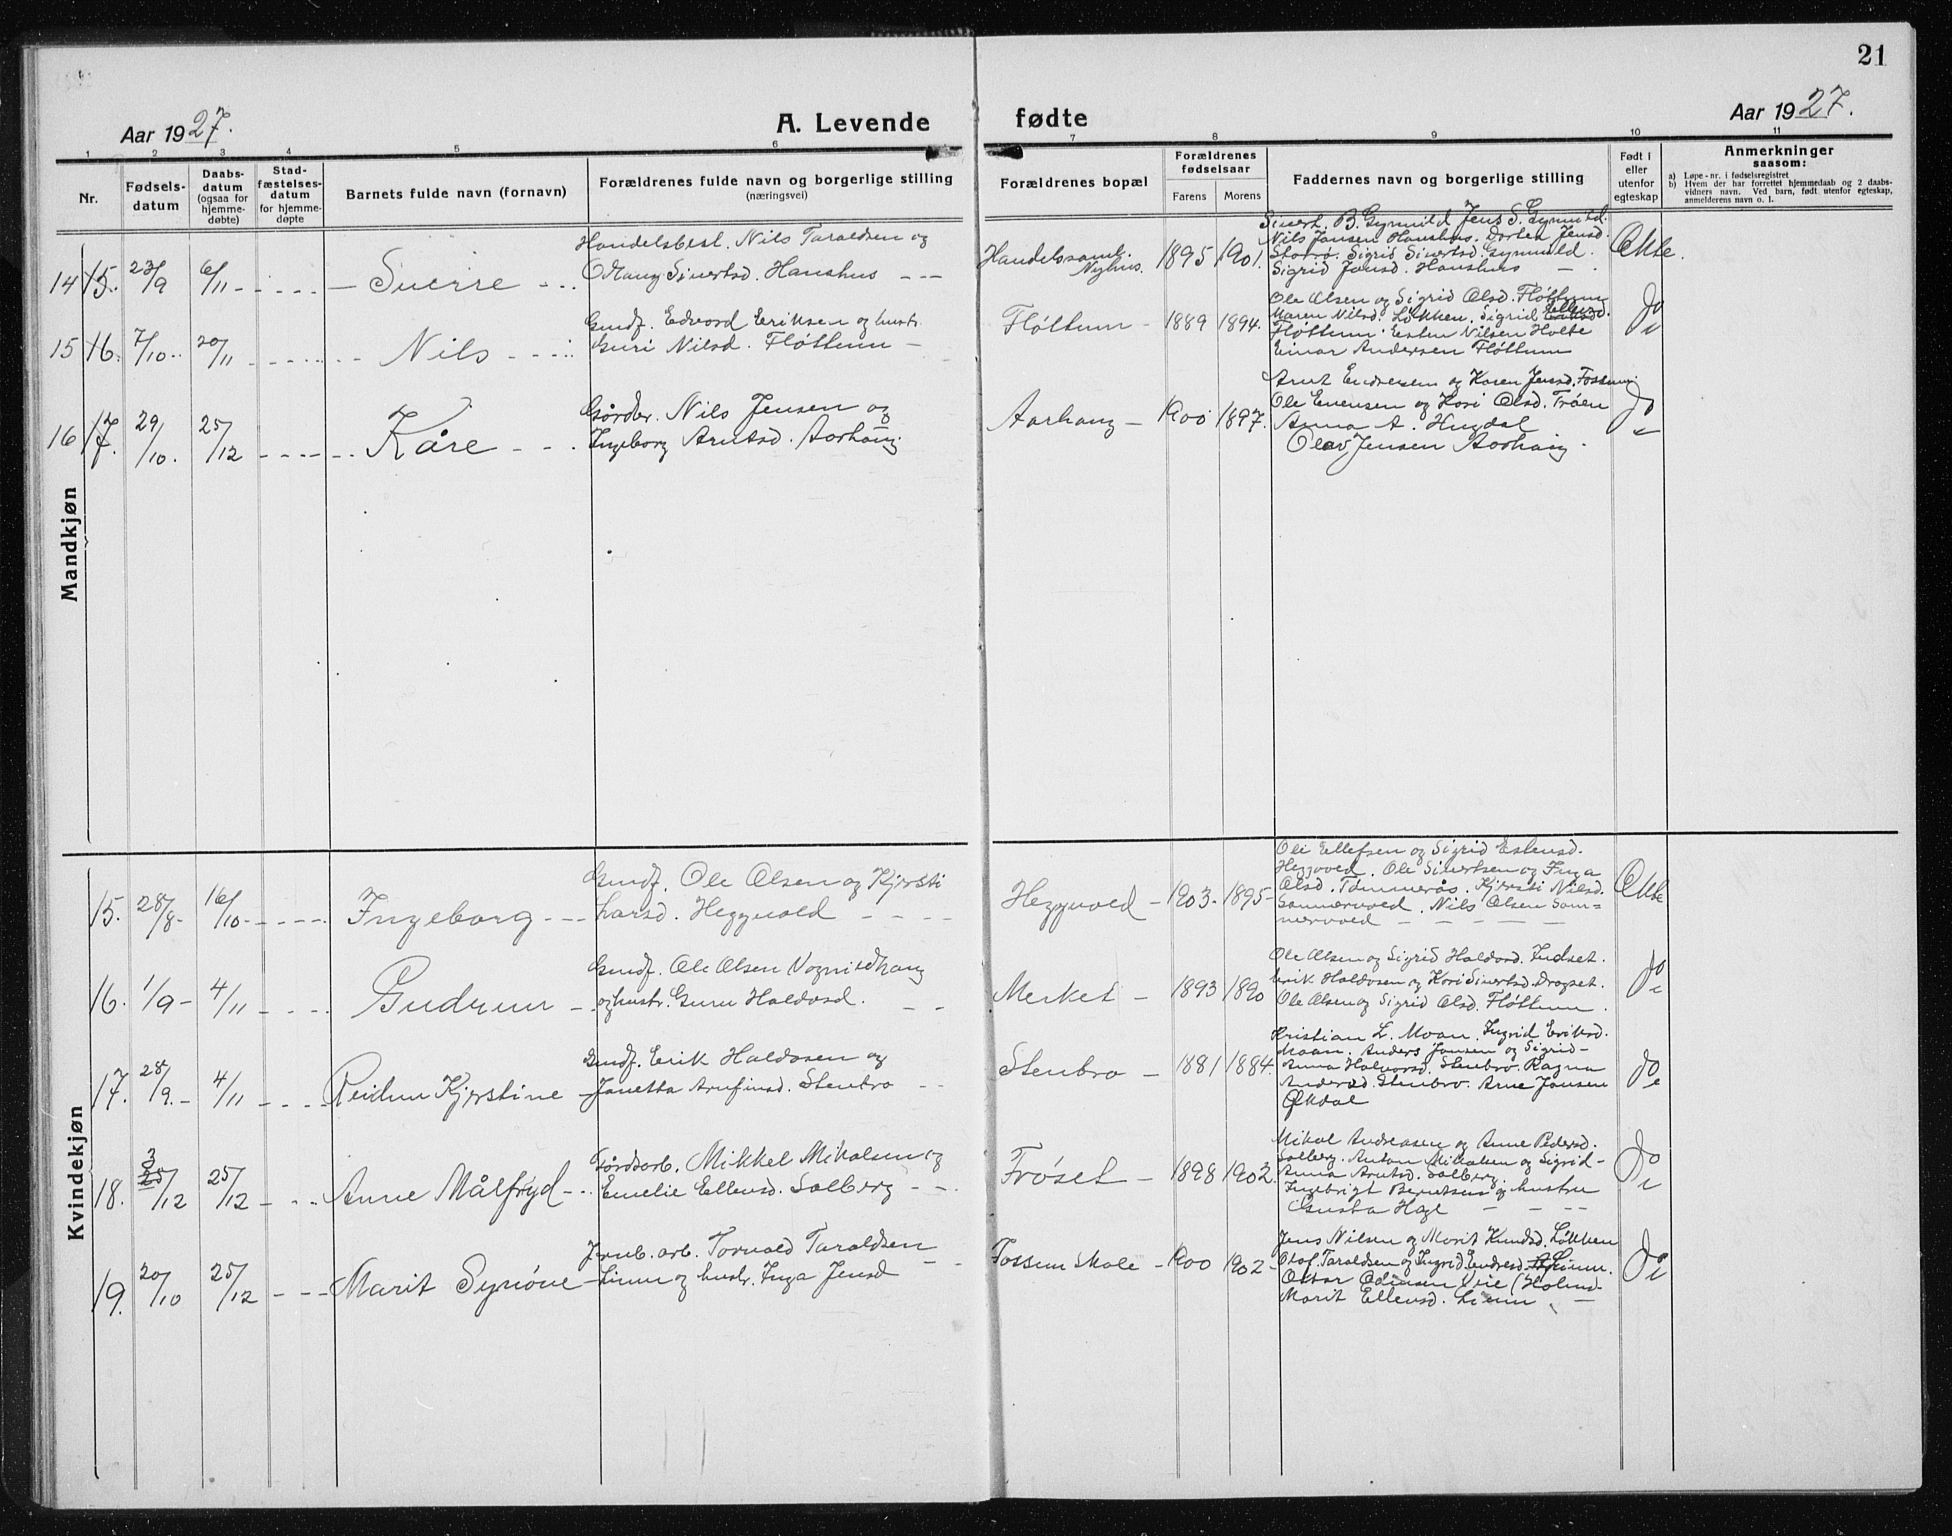 21
Aar 1927.
A. Levende fødte
Aar 1927.
1 2 3 4 5 6 7 8 9 10 11
Nr.
Fødsels-
datum
Daabs-
datum
(ogsaa for
hjemme-
døbte)
Stad-
fæstelses-
datum
for hjemme-
døpte
Barnets fulde navn (fornavn)
Forældrenes fulde navn og borgerlige stilling
(næringsvei)
Forældrenes bopæl
Forældrenes
fødselsaar
Farens Morens
Faddernes navn og borgerlige stilling
Født i
eller
utenfor
egteskap
Anmerkninger
saasom:
a) Løpe-nr. i fødselsregistret
b) Hvem der har forrettet hjemmedaab og 2 daabs-
vidners navn. Ved barn, født utenfor egteskap,
anmelderens navn o. l.
Mandkjøn
14 15. 23/9 6/11 Sverre
Handelsbest. Nils Taraldsen og
Sivertsd. Hanshus
Handelssaml.
Nyhus.
1895 1901.
Sivert B. Gynnild Jens S. Gynnild.
Nils Jansen Hanshus. Dortea Jensd.
Storrø. Sigrid Sivertsd. Gynnild.
Sigrid Jansd. Hanshus
Ekte.
15 16. 7/10 20/11 Nils
Gmdf. Edvard Eriksen og hustr.
Guri Nilsd. Fløttum
Fløttum 1889 1894.
Ole Olsen og Sigrid Olsd. Fløttum
Maren Nilsd. Løkken. Sigrid
Fløttum. Esten Nilsen Holte
Einar Andersen Fløttum
Do
16 17. 29/10. 25/12 Kåre
Gårdbr. Nils Jensen og
Ingeborg Arntsd. Aarhaug.
Aarhaug 1900 1897.
Arnt Endresen og Karen Jensd. Fossum.
Ole Evensen og Kari Olsd. Trøen
Anna A. Hugdal
Olav Jensen Aarhaug.
Do
Kvindekjøn
15. 28/8 16/10 Ingeborg
Gmdf. Ole Olsen og Kjersti
Larsd. Heggvold
Heggvold 1903. 1895
Ole Ellefsen og Sigrid Estensd.
Heggvold. Ole Sivertsen og Inga
Olsd. Tømmerås. Kjersti Nilsd.
Sommervold. Nils Olsen Som=
mervold
Ekte
16. 1/9 4/11 Gudrun
Gmdf. Ole Olsen Vognildhaug
og hustr. Guru Haldosd.
Merket 1893 1890
Ole Olsen og Sigrid Haldosd. Indset.
Erik Haldosen og Kari Sivertsd. Dragset.
Ole Olsen og Sigrid Olsd. Fløttum.
Do
17. 28/9. 4/11 Reidun Kjerstine
Gmdf. Erik Haldosen og
Janetta Arnfinsd. Stenbro
Stenbro 1881 1884.
Kristian L. Moan. Ingrid Eriksd.
Moan. Anders Jansen og Sigrid
Anna Halvorsd. Stenbro. Ragna
Andersd. Stenbro. Arne Jansen
Økdal
Do
18. 3 25/12 25/12 Anne Målfryd
Jordarb. Mikkel Mikalsen og
Emelie Ellensd. Solberg
Frøset 1898 1902.
Mikal Andreasen og Anne Pedersd.
Solberg. Anton Mikalsen og Sigrid
Anna Arntsd. Solberg.
Ingebrigt Berntsen og hustru
Gusta Hage
Do
19. 20/10 25/12 Marit Synøve
Jernb. arb. Torvald Taraldsen
Linn og hustr. Inga Jensd
Fossum skole 1900 1902
Jens Nilsen og Marit Knudsd. Løkken
Olaf Taraldsen og Ingrid Endresd. Linn.
Oskar Odinsen Vie (Holm
Marit Ellensd. Linn
Do